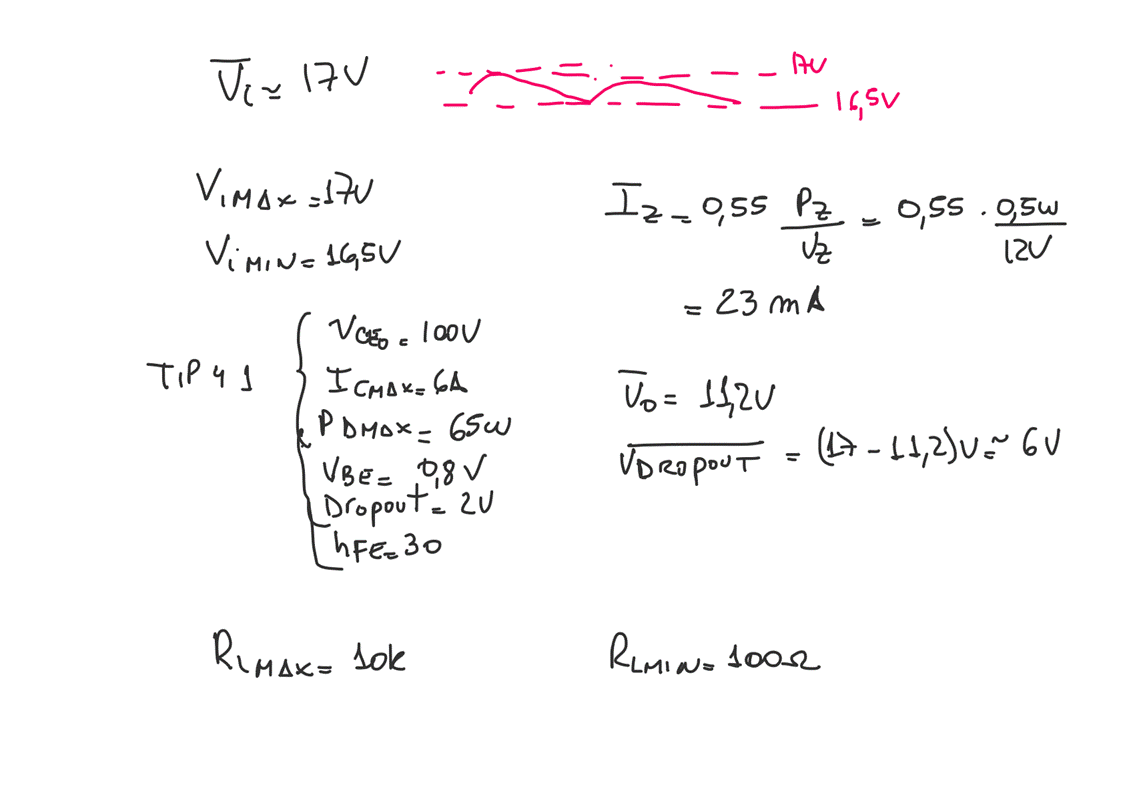 V̅i ≃ 17V
17V
16,5V
ViMAX = 17V
ViMIN = 16,5V
I̅Z = 0,55 PZ/VZ = 0,55 · 0,5W/12V
= 23 mA
TIP41
VCEO = 100V
ICMAX = 6A
PDMAX = 65W
VBE = 0,8V
Dropout = 2V
hFE = 30
V̅O = 11,2V
VDROPOUT = (17 - 11,2)V = ~ 6V
RLMAX = 10k
RLMIN = 100Ω